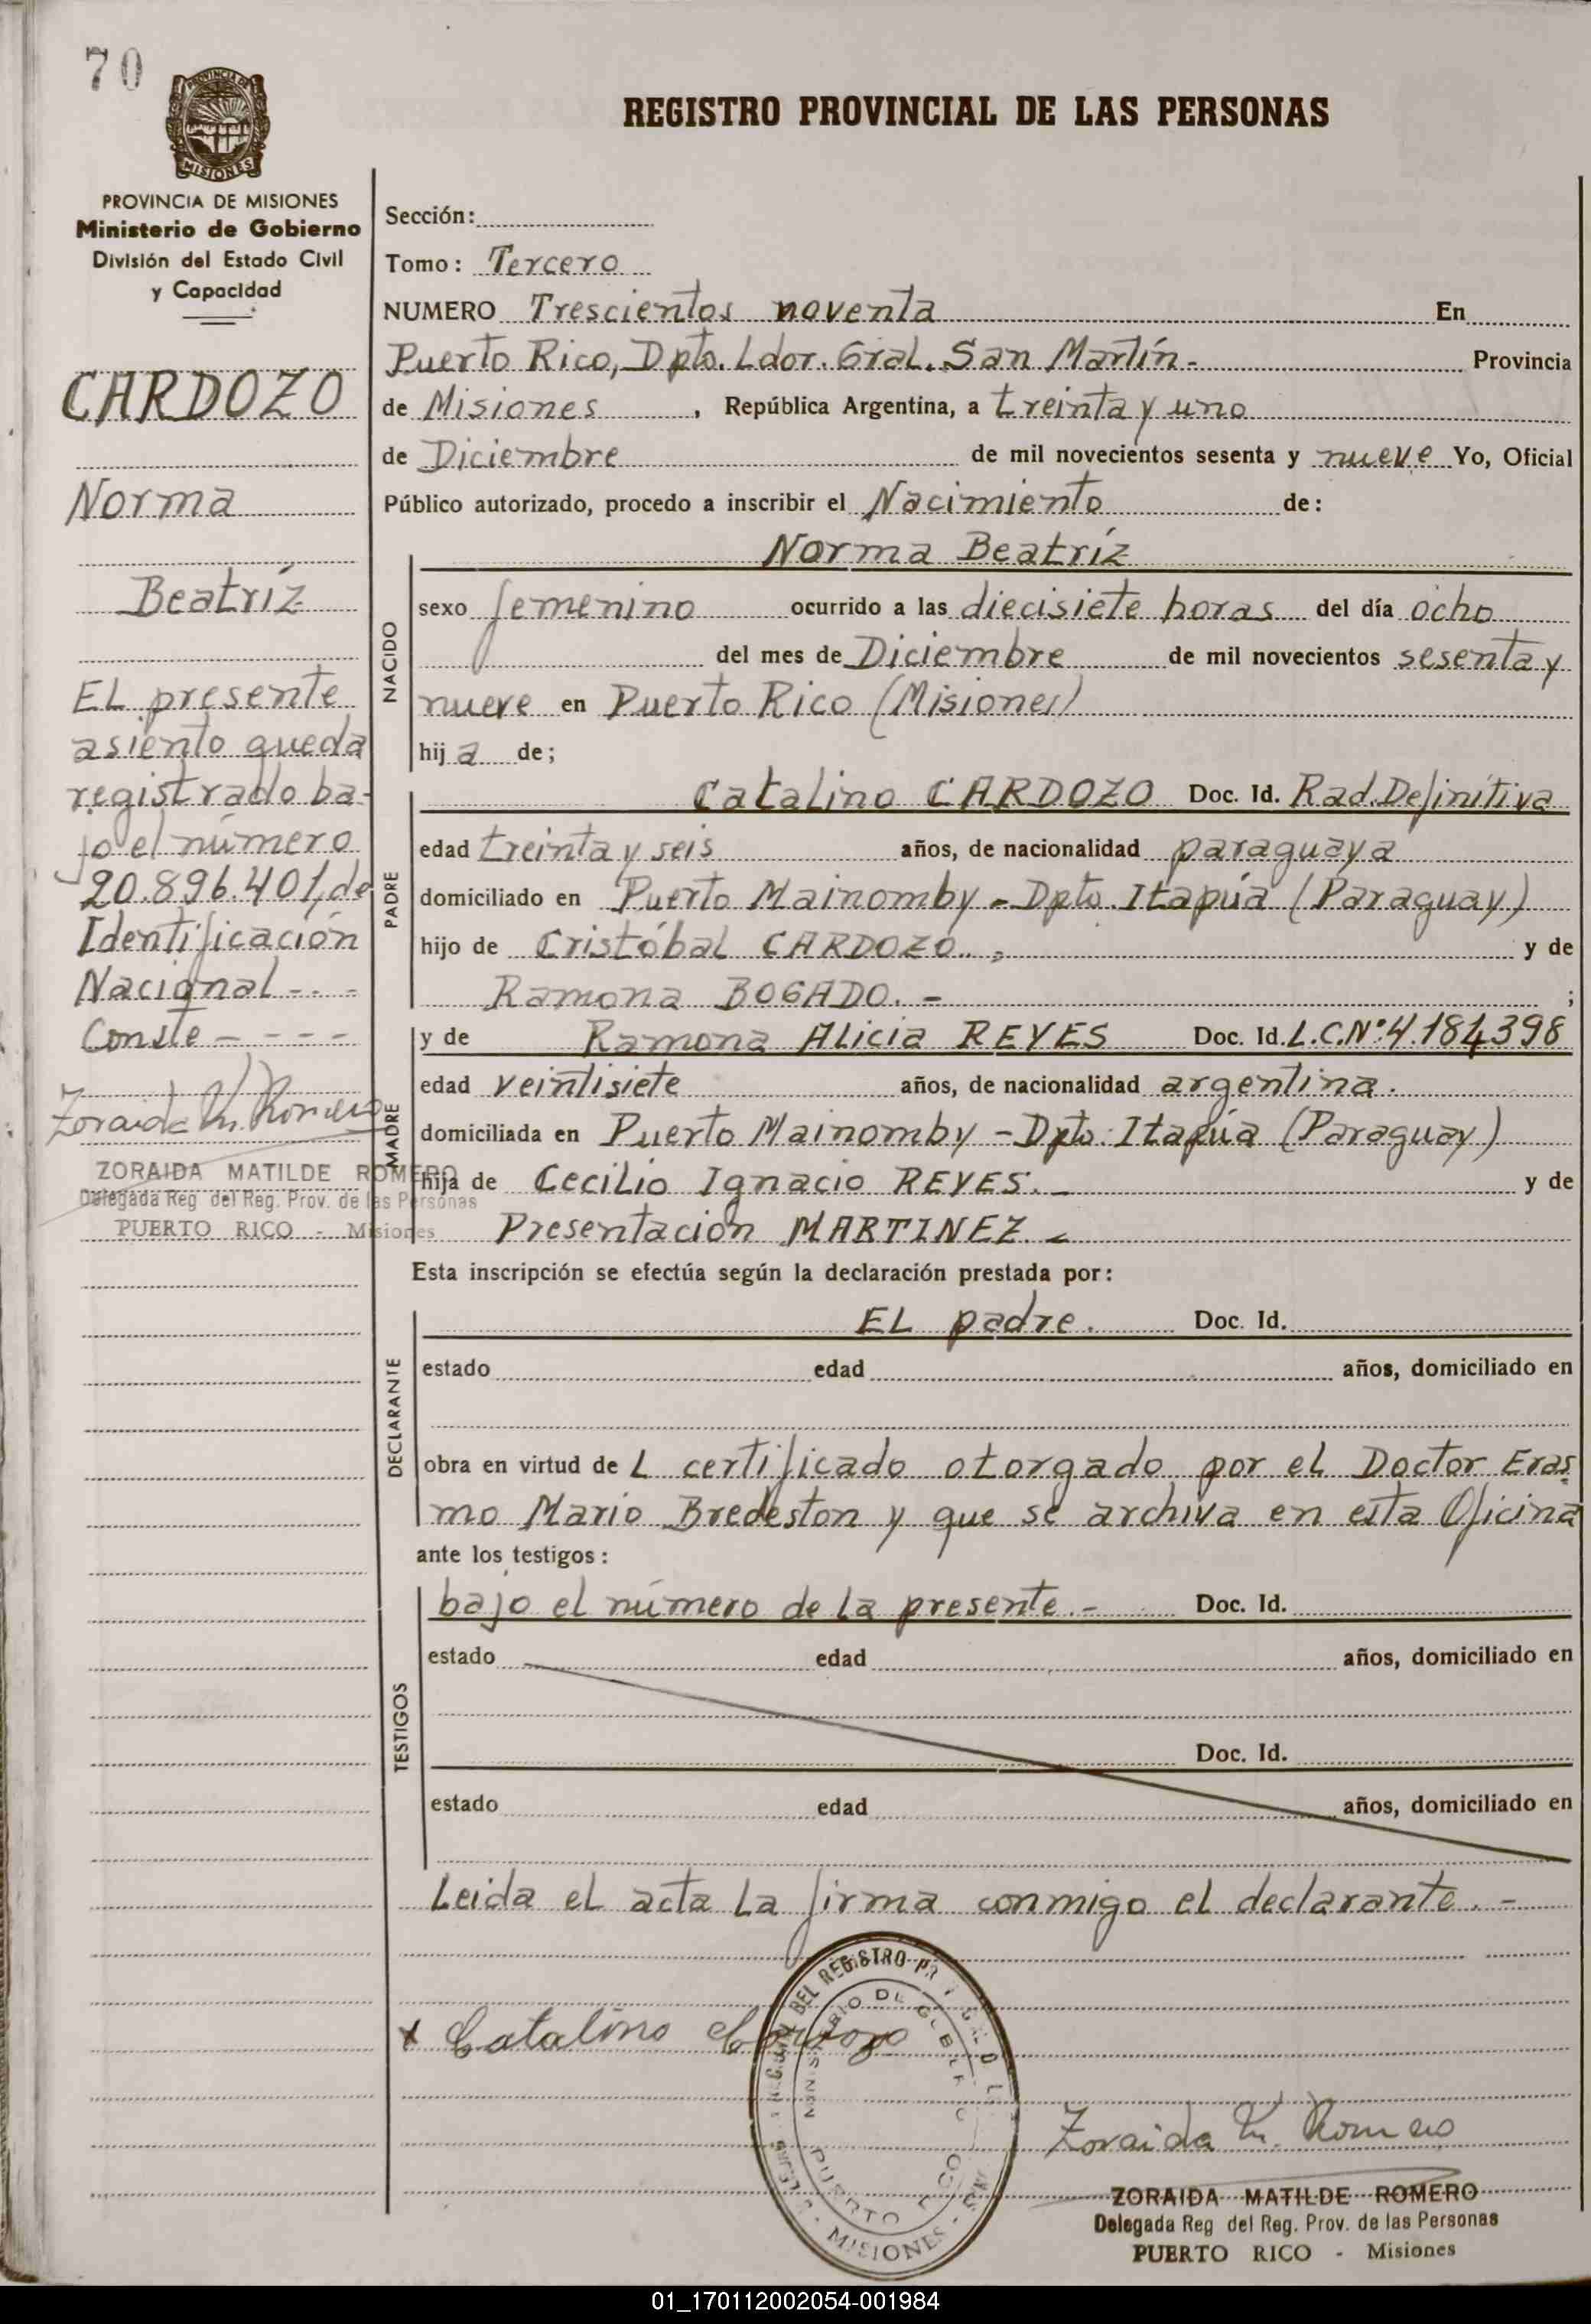 70
PROVINCIA DE
MISIONES
REGISTRO PROVINCIAL DE LAS PERSONAS
PROVINCIA DE MISIONES
Ministerio de Gobierno
División del Estado Civil
y Capacidad
CARDOZO
Norma
Beatríz
EL presente
asiento queda
registrado ba-
jo el número
20.896.401, de
Identificación
Nacional - . -
Conste - - - -
Zoraida M. Romero
ZORAIDA MATILDE ROMERO
Delegada Reg del Reg. Prov. de las Personas
PUERTO RICO - Misiones
Sección:
Tomo: Tercero
NUMERO Trescientos noventa En
Puerto Rico, Dpto. Ldor. Gral. San Martín.- Provincia
de Misiones , República Argentina, a treinta y uno
de Diciembre de mil novecientos sesenta y nueve Yo, Oficial
Público autorizado, procedo a inscribir el Nacimiento de:
Norma Beatríz
NACIDO
sexo femenino ocurrido a las diecisiete horas del día ocho
del mes de Diciembre de mil novecientos sesenta y
nueve en Puerto Rico (Misiones)
hija de;
PADRE
Catalino CARDOZO Doc. Id. Rad. Definitiva
edad treinta y seis años, de nacionalidad paraguaya
domiciliado en Puerto Mainomby - Dpto. Itapúa (Paraguay)
hijo de Cristóbal CARDOZO. - y de
Ramona BOGADO. - ;
MADRE
y de Ramona ALicia REYES Doc. Id. L.C.Nº:4.184398
edad veintisiete años, de nacionalidad argentina.
domiciliada en Puerto Mainomby - Dpto. Itapúa (Paraguay)
hija de Cecilio Ignacio REYES. - y de
Presentación MARTINEZ. -
Esta inscripción se efectúa según la declaración prestada por:
DECLARANTE
EL padre. Doc. Id.
estado edad años, domiciliado en
obra en virtud de L certificado otorgado por el Doctor Eras-
mo Mario Bredeston y que se archiva en esta Oficina
ante los testigos:
TESTIGOS
bajo el número de la presente.- Doc. Id.
estado edad años, domiciliado en
Doc. Id.
estado edad años, domiciliado en
Leida el acta la firma conmigo el declarante. -
x Catalino Cardozo
DEL REGISTRO
MINISTERIO DE
PUERTO
MISIONES
Zoraida M. Romero
ZORAIDA MATILDE ROMERO
Delegada Reg del Reg. Prov. de las Personas
PUERTO RICO - Misiones
01_170112002054-001984